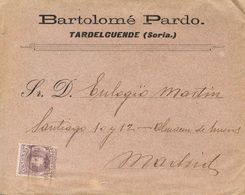 Bartolomé Pardo.
TARDELCUENDE (Soria.)
Sr. D. Eulogio Martin
Santiago 10 y 12 - Almacen de
Madrid